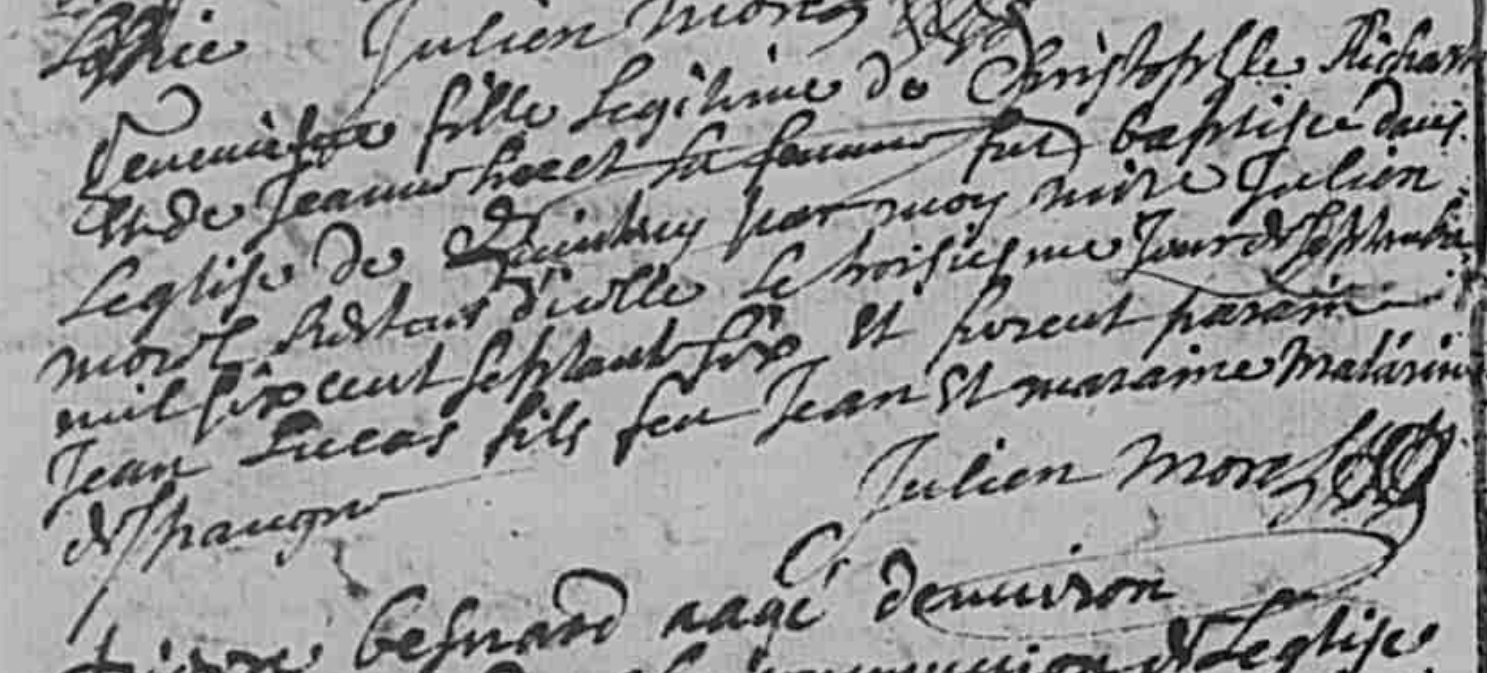 Julien Morel
fille Legitime de Christophle Richard
Et de Jeanne horet sa femme fut baptisee dans
Leglise de par moy mire Julien
morel Recteur dicelle Le troisiesme Jour de septembre
mil six cent septante six Et furent parain
Jean Lucas fils feu Jean Et maraine Maturine
despaugne
Julien Morel
Cy
besnard aagé denuiron
de Leglise